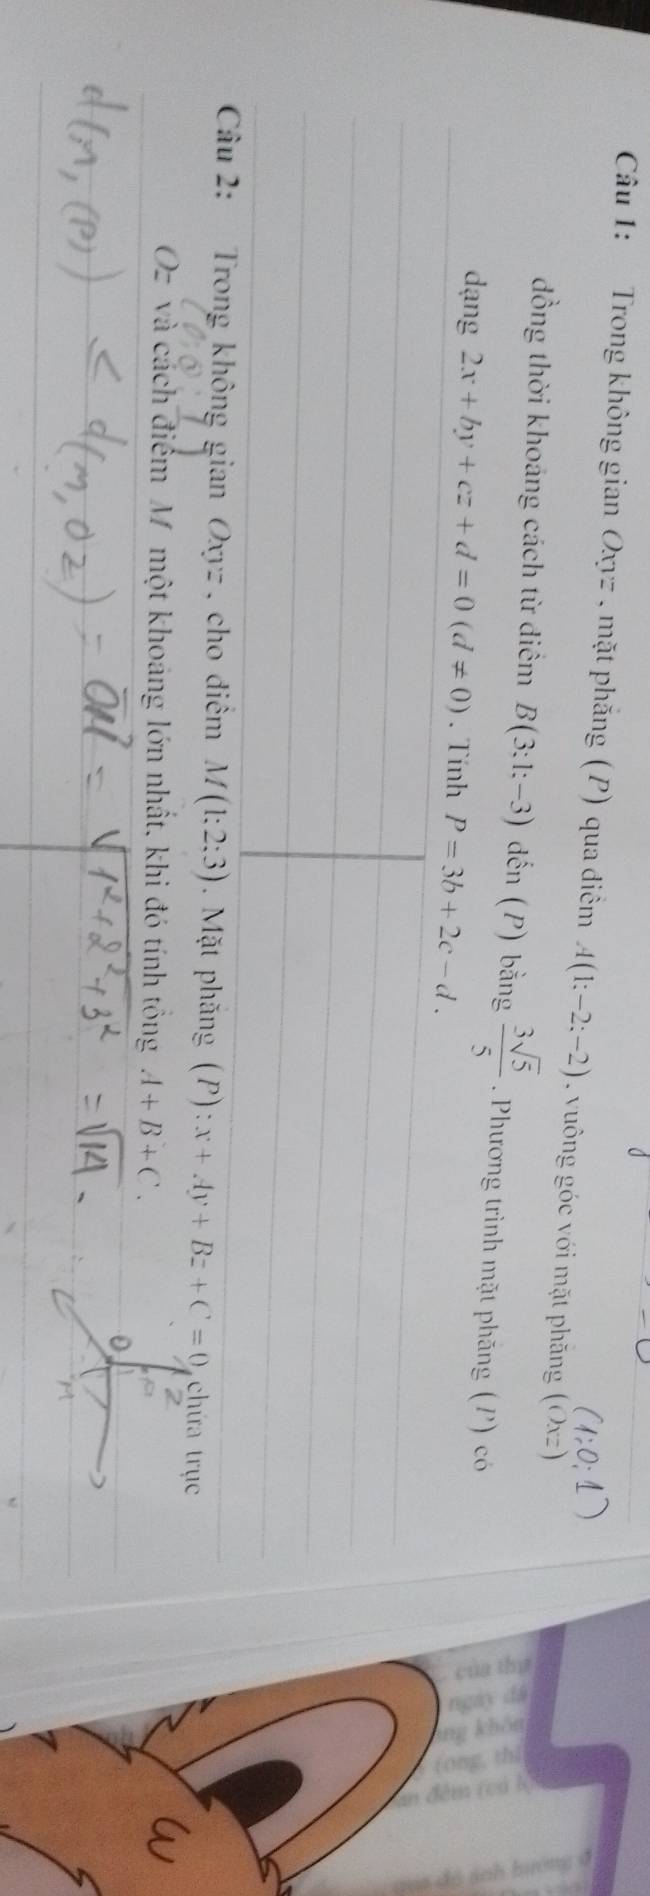 (1;0;1)
Câu 1: Trong không gian Oxyz, mặt phẳng (P) qua điểm A(1;-2;-2), vuông góc với mặt phẳng (Oxz)
đồng thời khoảng cách từ điểm B(3;1;-3) đến (P) bằng 3√5/5. Phương trình mặt phẳng (P) có
dạng 2x + by + cz + d = 0 (d ≠ 0). Tính P = 3b + 2c - d.
Câu 2: Trong không gian Oxyz, cho điểm M(1;2;3). Mặt phẳng (P): x + Ay + Bz + C = 0 chứa trục
(0;0;1)
Oz và cách điểm M một khoảng lớn nhất, khi đó tính tổng A + B + C.
d(m,(P)) ≤ d(m, Oz) = OM = √1²+2²+3² = √14.
0
m
của thự
ngày đã
(ong, thi